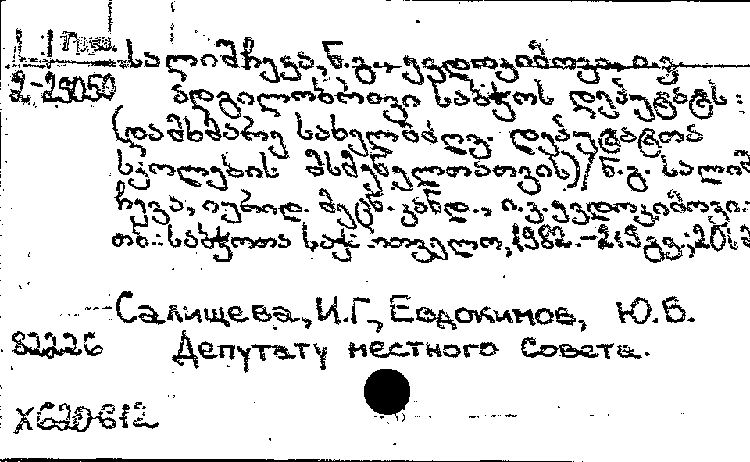 სალიშჩევა, ნ.გ., ევდოკიმოვი, ი.ვ.
2-29050 ადგილობრივი საბჭოს დეპუტატს:
(დამხმარე სახელმძღვ. დეპუტატთა
სკოლების მსმენელთათვის)/ნ.გ. სალიშ
ჩევა, იურიდ. მეცნ. კანდ., ი.ვ. ევდოკიმოვი.-
თბ.: საბჭოთა საქართველო, 1982.-219გვ.; 20სმ
Салищева, Н.Г., Евдокимов, Ю.В.
82226 Депутату местного Совета.
X620-612